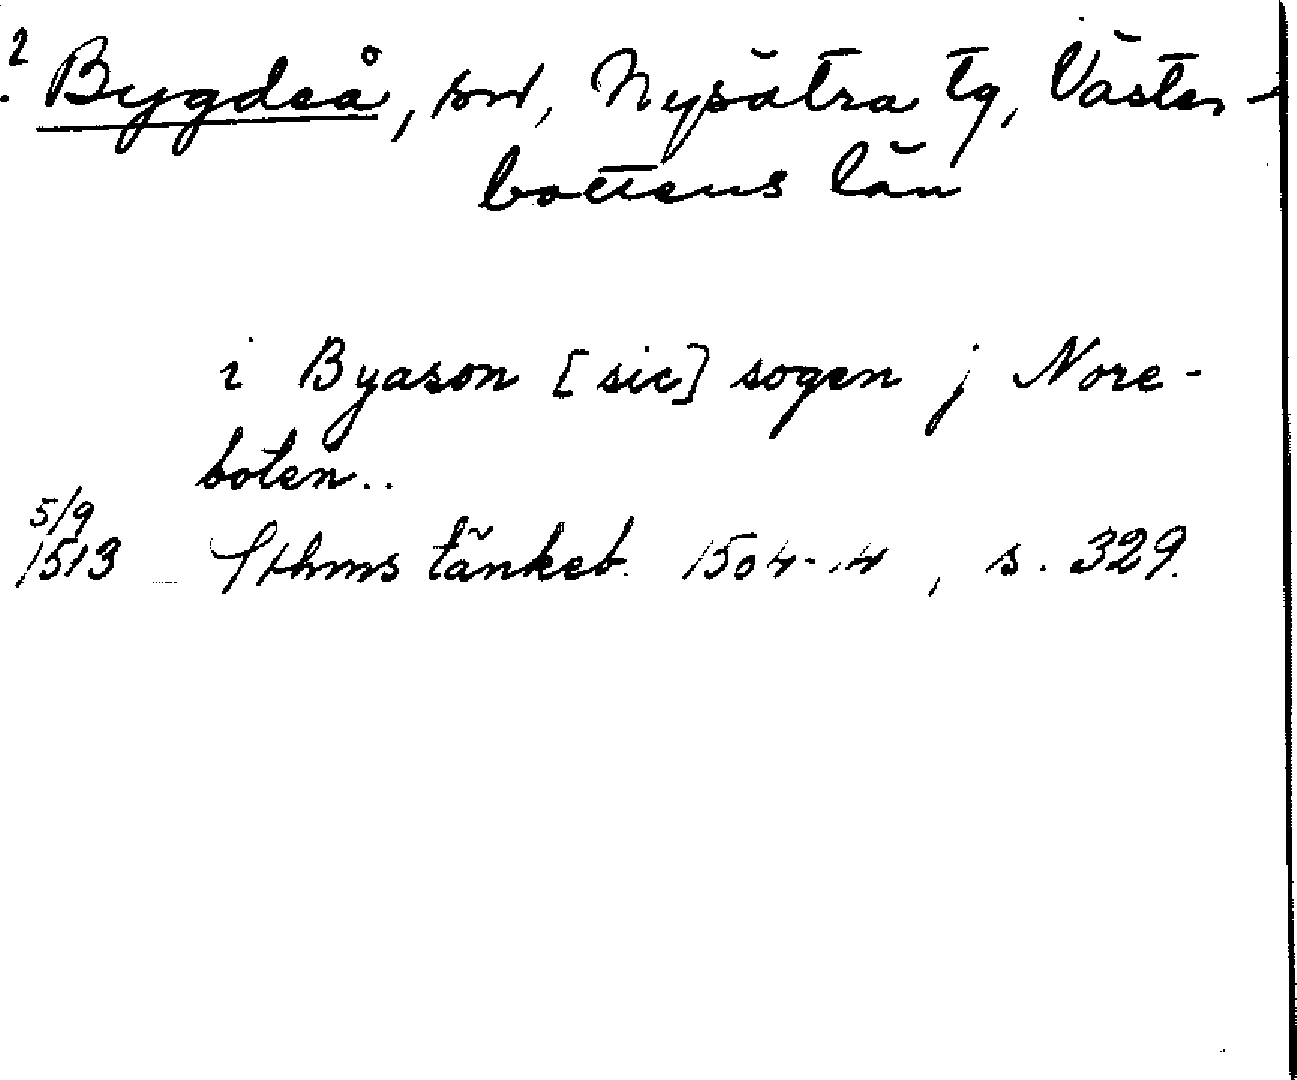 ? Bygdeå, sn, Nysätra tg, Väster-
bottens län
i Byason [sic] sogen j Nore-
boten..
5/9
1513 Sthms tänkeb. 1504-14, s. 329.